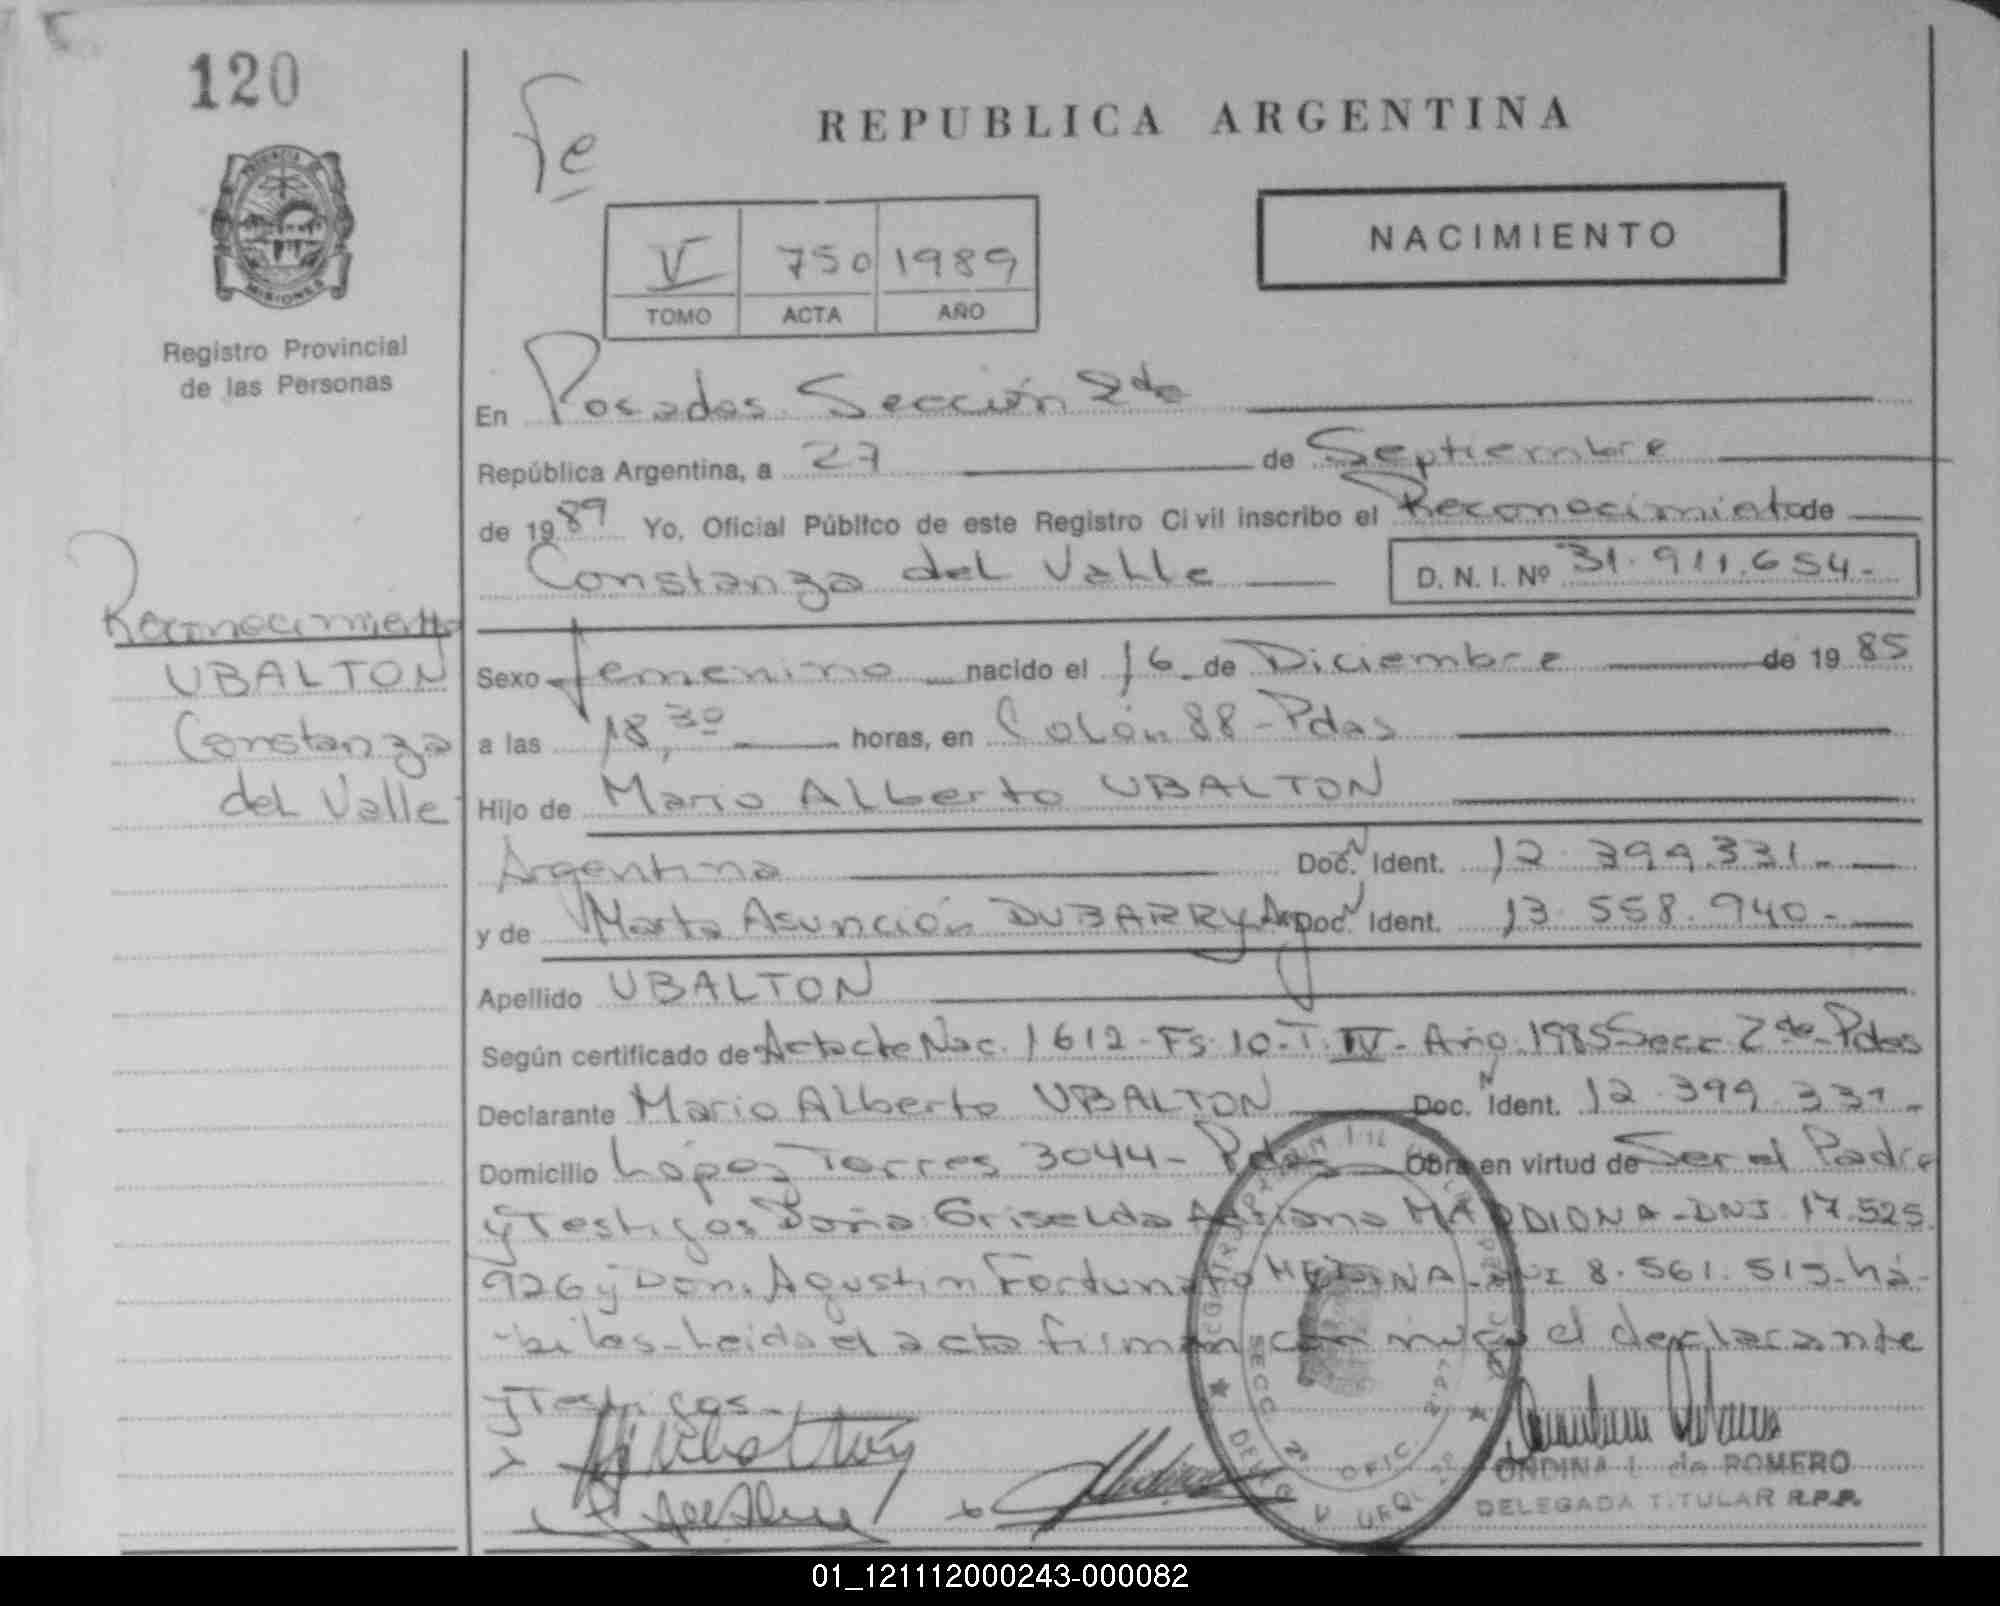 120
Fe
REPUBLICA ARGENTINA
PROVINCIA DE
MISIONES
NACIMIENTO
V 750 1989
TOMO ACTA AÑO
Registro Provincial
de las Personas
En Posadas Sección 2da
República Argentina, a 27 de Septiembre
de 1989 Yo, Oficial Público de este Registro Civil inscribo el Reconocimiento de
Constanza del Valle D. N. I. Nº 31.911.654.-
Reconocimiento
UBALTON
Constanza
del Valle
Sexo femenino nacido el 16 de Diciembre de 1985
a las 18,30 horas, en Colón 88 - Pdas
Hijo de Mario Alberto UBALTON
Argentina Doc. N Ident. 12.399.331.-
y de Marta Asunción DUBARRY Arg Doc. N Ident. 13.558.940.-
Apellido UBALTON
Según certificado de Acta de Nac. 1612 - Fs. 10 - T. IV - Año 1985 Secc 2da - Pdas
Declarante Mario Alberto UBALTON Doc. N Ident. 12.399.331.-
Domicilio López Torres 3044 - Pdas Obra en virtud de Ser el Padre
y Testigos Doña Griselda Adriana - DNI 17.525.
926 y Don. Agustín Fortunato MEDINA - DNI 8.561.515 - há-
-biles - Leida el acta firman con migo el declarante
y Testigos.-
SECC. 2ª
OFIC.
ONDINA L. de ROMERO
DELEGADA TITULAR R.P.P.
01_121112000243-000082